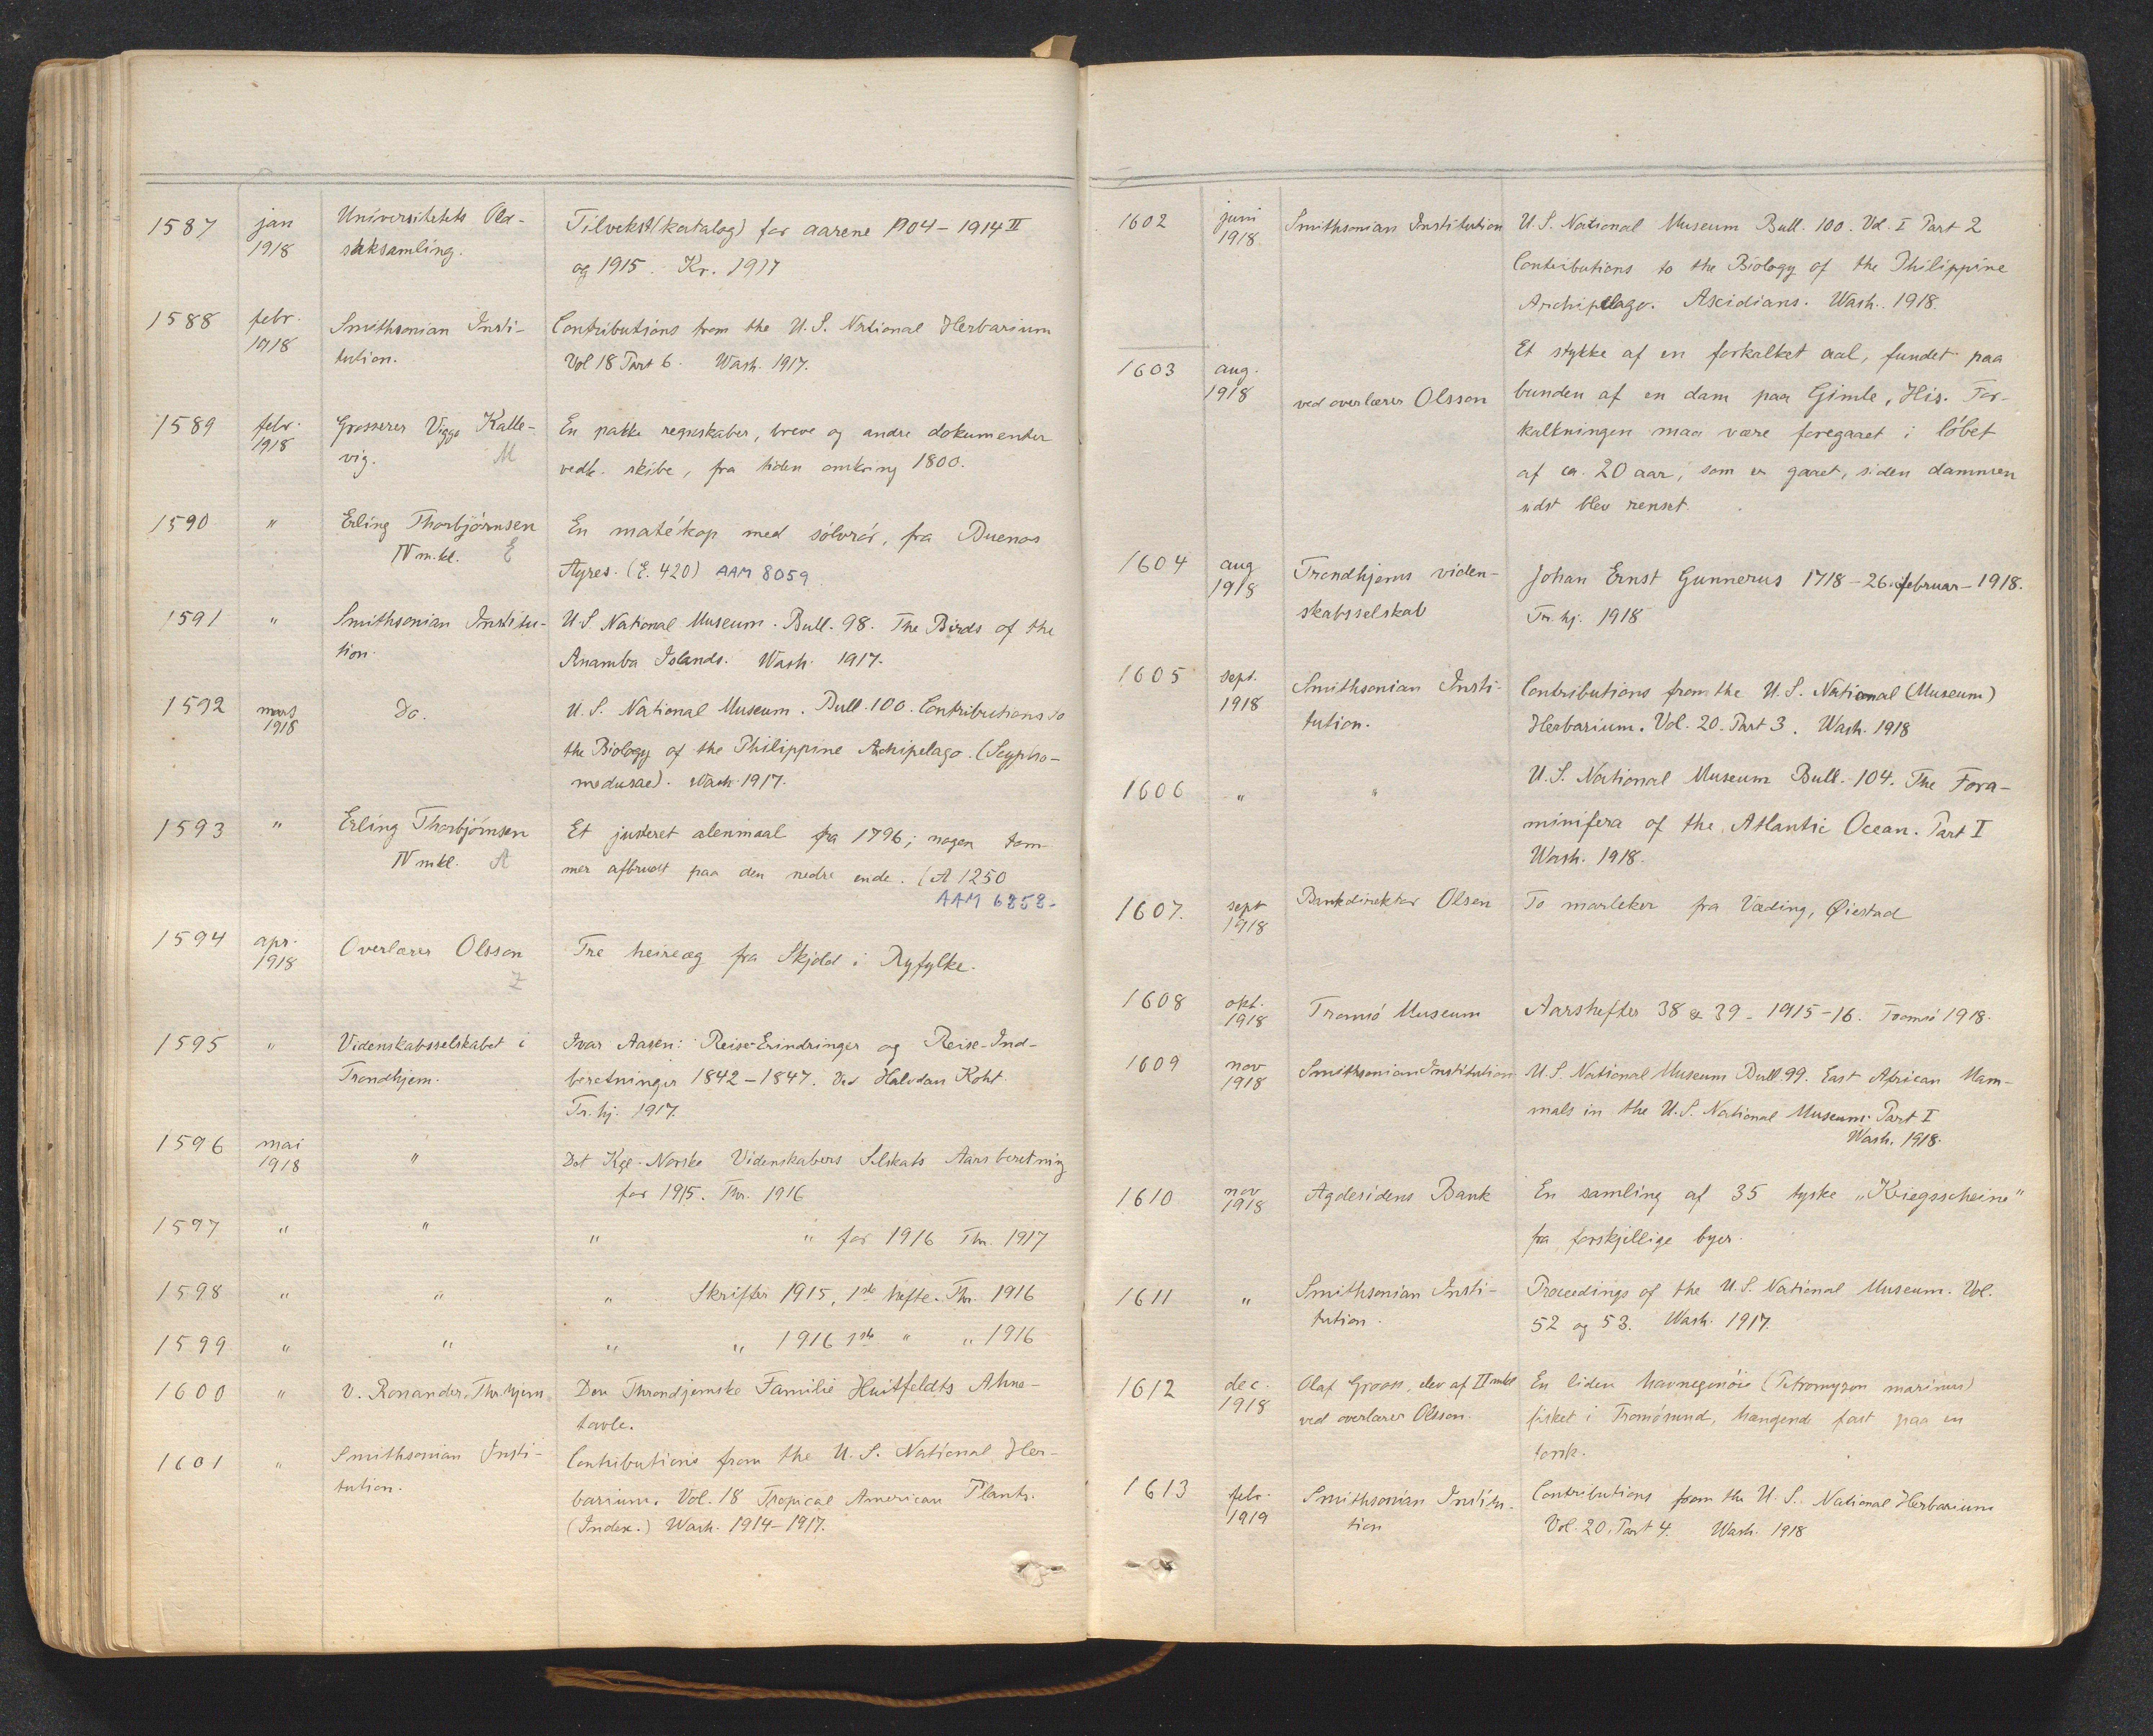 1587 jan 1918 Universitetets Old-
saksamling.
Tilvekst (katalog) for aarene 1904-1914 II
og 1915. Kr. 1917
1588 febr. 1918 Smithsonian Insti-
tution.
Contributions from the U.S. National Herbarium
Vol 18 Part 6. Wash. 1917.
1589 febr. 1918 Grosserer Viggo Kalle-
vig. M
En pakke regnskaber, breve og andre dokumenter
vedk. skibe, fra tiden omkring 1800.
1590 " Erling Thorbjörnsen
IV m.kl. E
En matékop med sölvrör, fra Buenos
Ayres. (E. 420) AAM 8059
1591 " Smithsonian Institu-
tion.
U S National Museum. Bull. 98. The Birds of the
Anamba Islands. Wash. 1917.
1592 mars 1918 Do.
U. S. National Museum. Bull. 100. Contributions to
the Biology of the Philippine Archipelago. (Scypho-
medusae). Wash. 1917.
1593 " Erling Thorbjörnsen
IV mkl. A
Et justeret alenmaal fra 1796; nogen tom-
mer afbrudt paa den nedre ende. (A 1250
AAM 6858.
1594 apr. 1918 Overlærer Olsson
Z
Tre heireæg fra Skjold i Ryfylke.
1595 " Videnskabsselskabet i
Trondhjem.
Ivar Aasen: Reise-Erindringer og Reise-Ind-
beretninger 1842-1847. Ved Halvdan Koht.
Tr.hj. 1917.
1596 mai 1918 "
Det Kgl. Norske Videnskabers Selskabs Aarsberetning
for 1915. Thr. 1916
1597 " " " " for 1916 Thr. 1917
1598 " " " Skrifter 1915, 1ste hefte. Thr. 1916
1599 " " " " 1916 1ste " " 1916
1600 " V. Ronander, Thr.hjem.
Den Throndjemske Familie Huitfeldts Ahne-
tavle.
1601 " Smithsonian Insti-
tution.
Contributions from the U. S. National Her-
barium. Vol. 18 Tropical American Plants.
(Index.) Wash. 1914-1917.
1602 juni 1918. Smithsonian Institution
U. S. National Museum Bull. 100. Vol. I Part 2
Contributions to the Biology of the Philippine
Archipelago. Ascidians. Wash. 1918.
1603 aug. 1918 ved overlærer Olsson
Et stykke af en forkalket aal, fundet paa
bunden af en dam paa Gimle, His. For-
kalkningen maa være foregaaet i löbet
af ca. 20 aar, som er gaaet, siden dammen
sidst blev renset.
1604 aug 1918 Trondhjems viden-
skabsselskab
Johan Ernst Gunnerus 1718-26. februar-1918.
Tr. hj. 1918
1605 sept. 1918 Smithsonian Insti-
tution.
Contributions from the U. S. National (Museum)
Herbarium. Vol. 20. Part 3. Wash. 1918
1606 " "
U. S. National Museum Bull. 104. The Fora-
minifera of the Atlantic Ocean. Part I
Wash. 1918.
1607. sept 1918 Bankdirektør Olsen
To marleker fra Væding, Øiestad
1608 okt. 1918 Tromsö Museum
Aarshefter 38 & 39 - 1915-16. Tromsö 1918.
1609 nov 1918 Smithsonian Institution
U. S. National Museum Bull. 99. East African Mam-
mals in the U. S. National Museum. Part I
Wash. 1918.
1610 nov 1918 Agdesidens Bank
En samling af 35 tyske „Kriegsscheine"
fra forskjellige byer.
1611 " Smithsonian Insti-
tution.
Proceedings of the U. S. National Museum. Vol.
52 og 53. Wash. 1917.
1612 dec. 1918 Olaf Groos, elev af II mkl
ved overlærer Olsson.
En liden havnegenöie (Petromyzon marinus)
fisket i Tromösund, hængende fast paa en
torsk.
1613 febr. 1919 Smithsonian Institu-
tion
Contributions from the U. S. National Herbarium
Vol. 20. Part 4. Wash. 1918